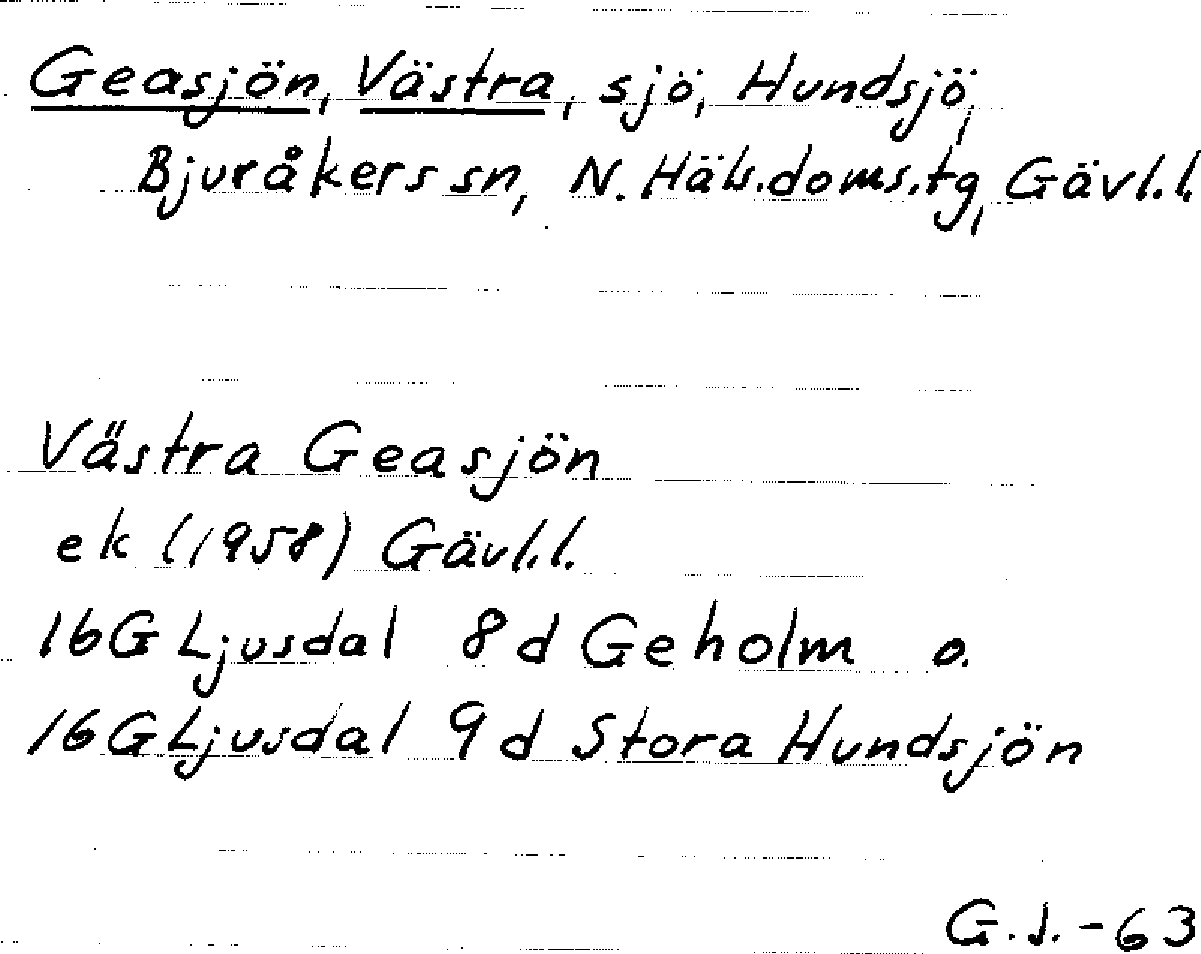 Geasjön, Västra, sjö, Hundsjö,
Bjuråkers sn, N. Häls.doms.tg, Gävl.l.
Västra Geasjön
ek (1958) Gävl.l.
16G Ljusdal 8d Geholm o.
16G Ljusdal 9d Stora Hundsjön
G.J.-63